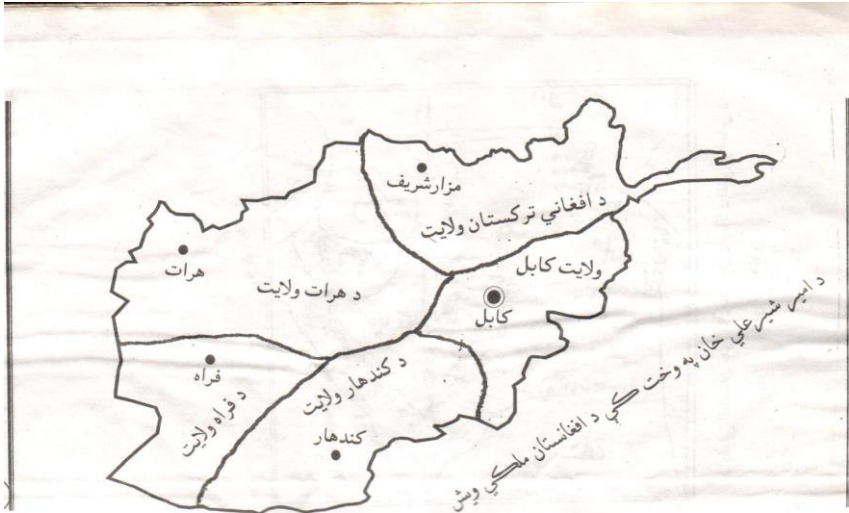 مزارشریف
د افغاني ترکستان ولایت
هرات
د هرات ولایت
ولایت کابل
کابل
فراه
د فراه ولایت
د کندهار ولایت
کندهار
د امیر شیر علي خان په وخت کې د افغانستان ملکي ویش